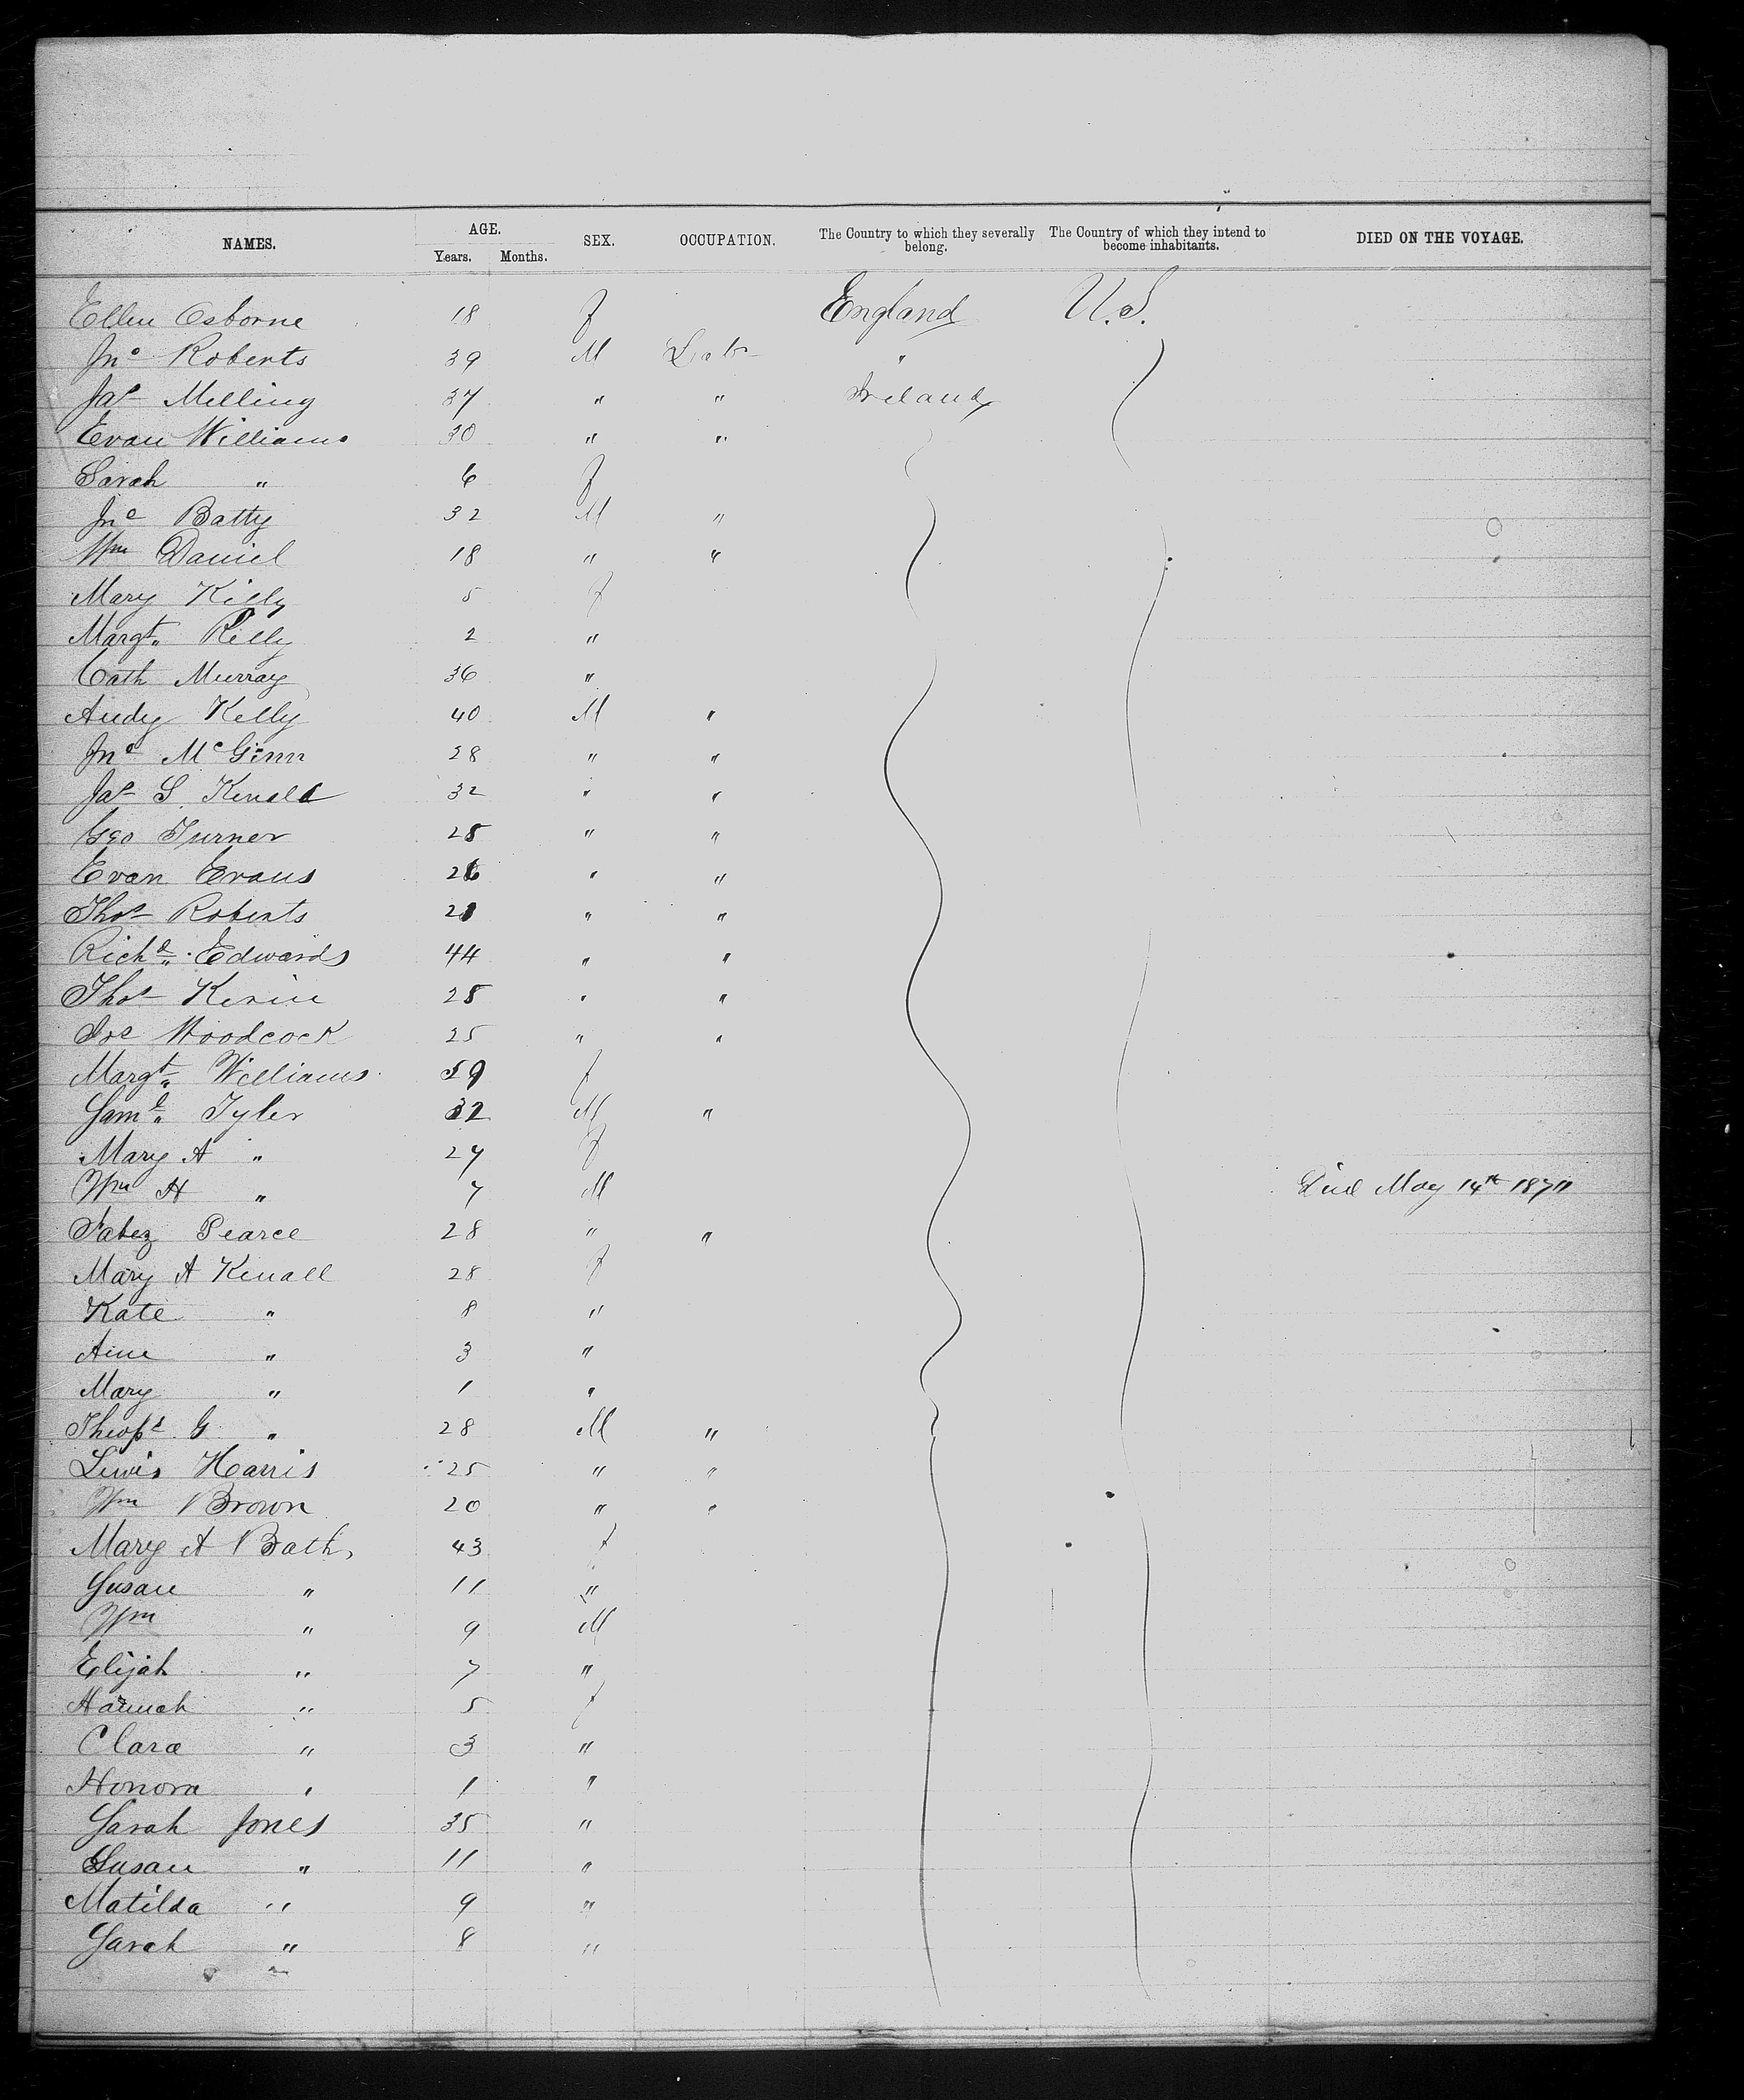 NAMES. AGE. Years. Months. SEX. OCCUPATION. The Country to which they severally belong. The Country of which they intend to become inhabitants. DIED ON THE VOYAGE.
Ellen Osborne 18 f England U.S.
Jno Roberts 39 M Lab "
Jas Melling 37 " " Ireland
Evan Williams 30 " "
Sarah " 6 f
Jno Batty 32 M "
Wm Daniel 18 " "
Mary Kelly 5 f
Margt Kelly 2 "
Cath Murray 36 "
Andy Kelly 40 M "
Jno McGinn 28 " "
Jas S. 32 " "
Geo Turner 25 " "
Evan Evans 26 " "
Thos Roberts 21 " "
Richd Edwards 44 " "
Thos 25 " "
Jos Woodcock 25 " "
Margt Williams 59 f
Saml Tyler 32 M "
Mary A " 27 f
Wm H " 7 M Died May 14th 1871
Jabez Pearce 28 " "
Mary A Kenall 28 f
Kate " 8 "
Ame " 3 "
Mary " 1 "
Theops G " 28 M "
Lewis Harris 25 " "
Wm Brown 20 " "
Mary A Bath 43 f
Susan " 11 "
Wm " 9 M
Elijah " 7 "
Hannah " 5 f
Clara " 3 "
Honora " 1 "
Sarah Jones 35 "
Susan " 11 "
Matilda " 9 "
Sarah " 8 "